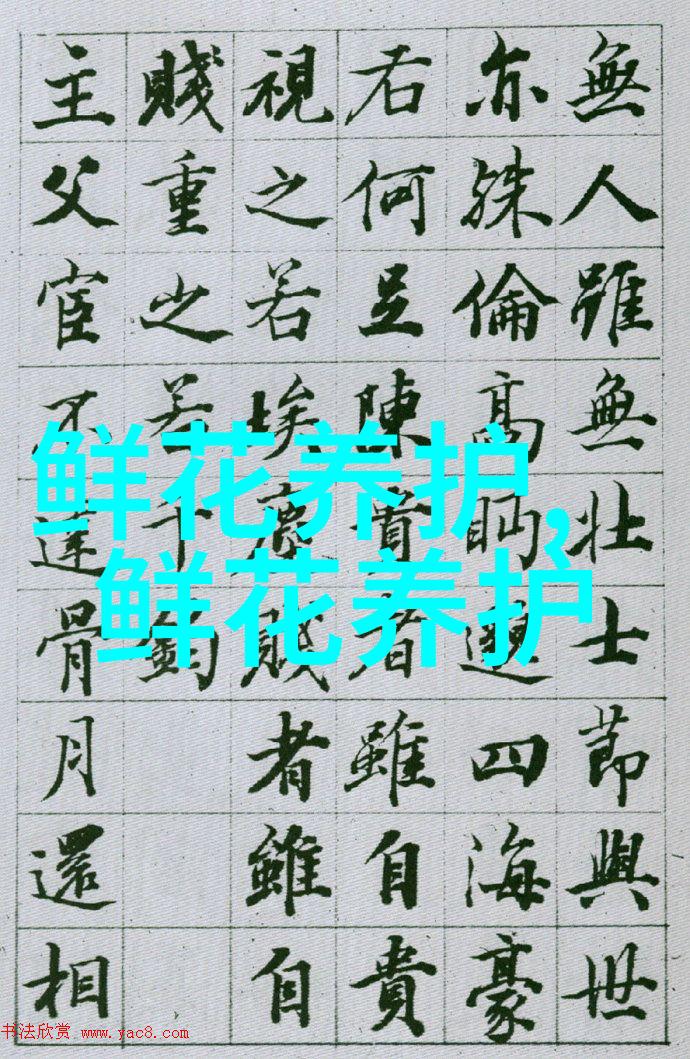 無人雖無壯士節與世
亦殊倫高眄邈四海豪
右何足陳貴者雖自貴
視之若埃塵賤者雖自
賤重之若千鈞
主父宦不達骨月還相
鲜花养护,
鲜花养护
书法欣赏 www.yac8.com